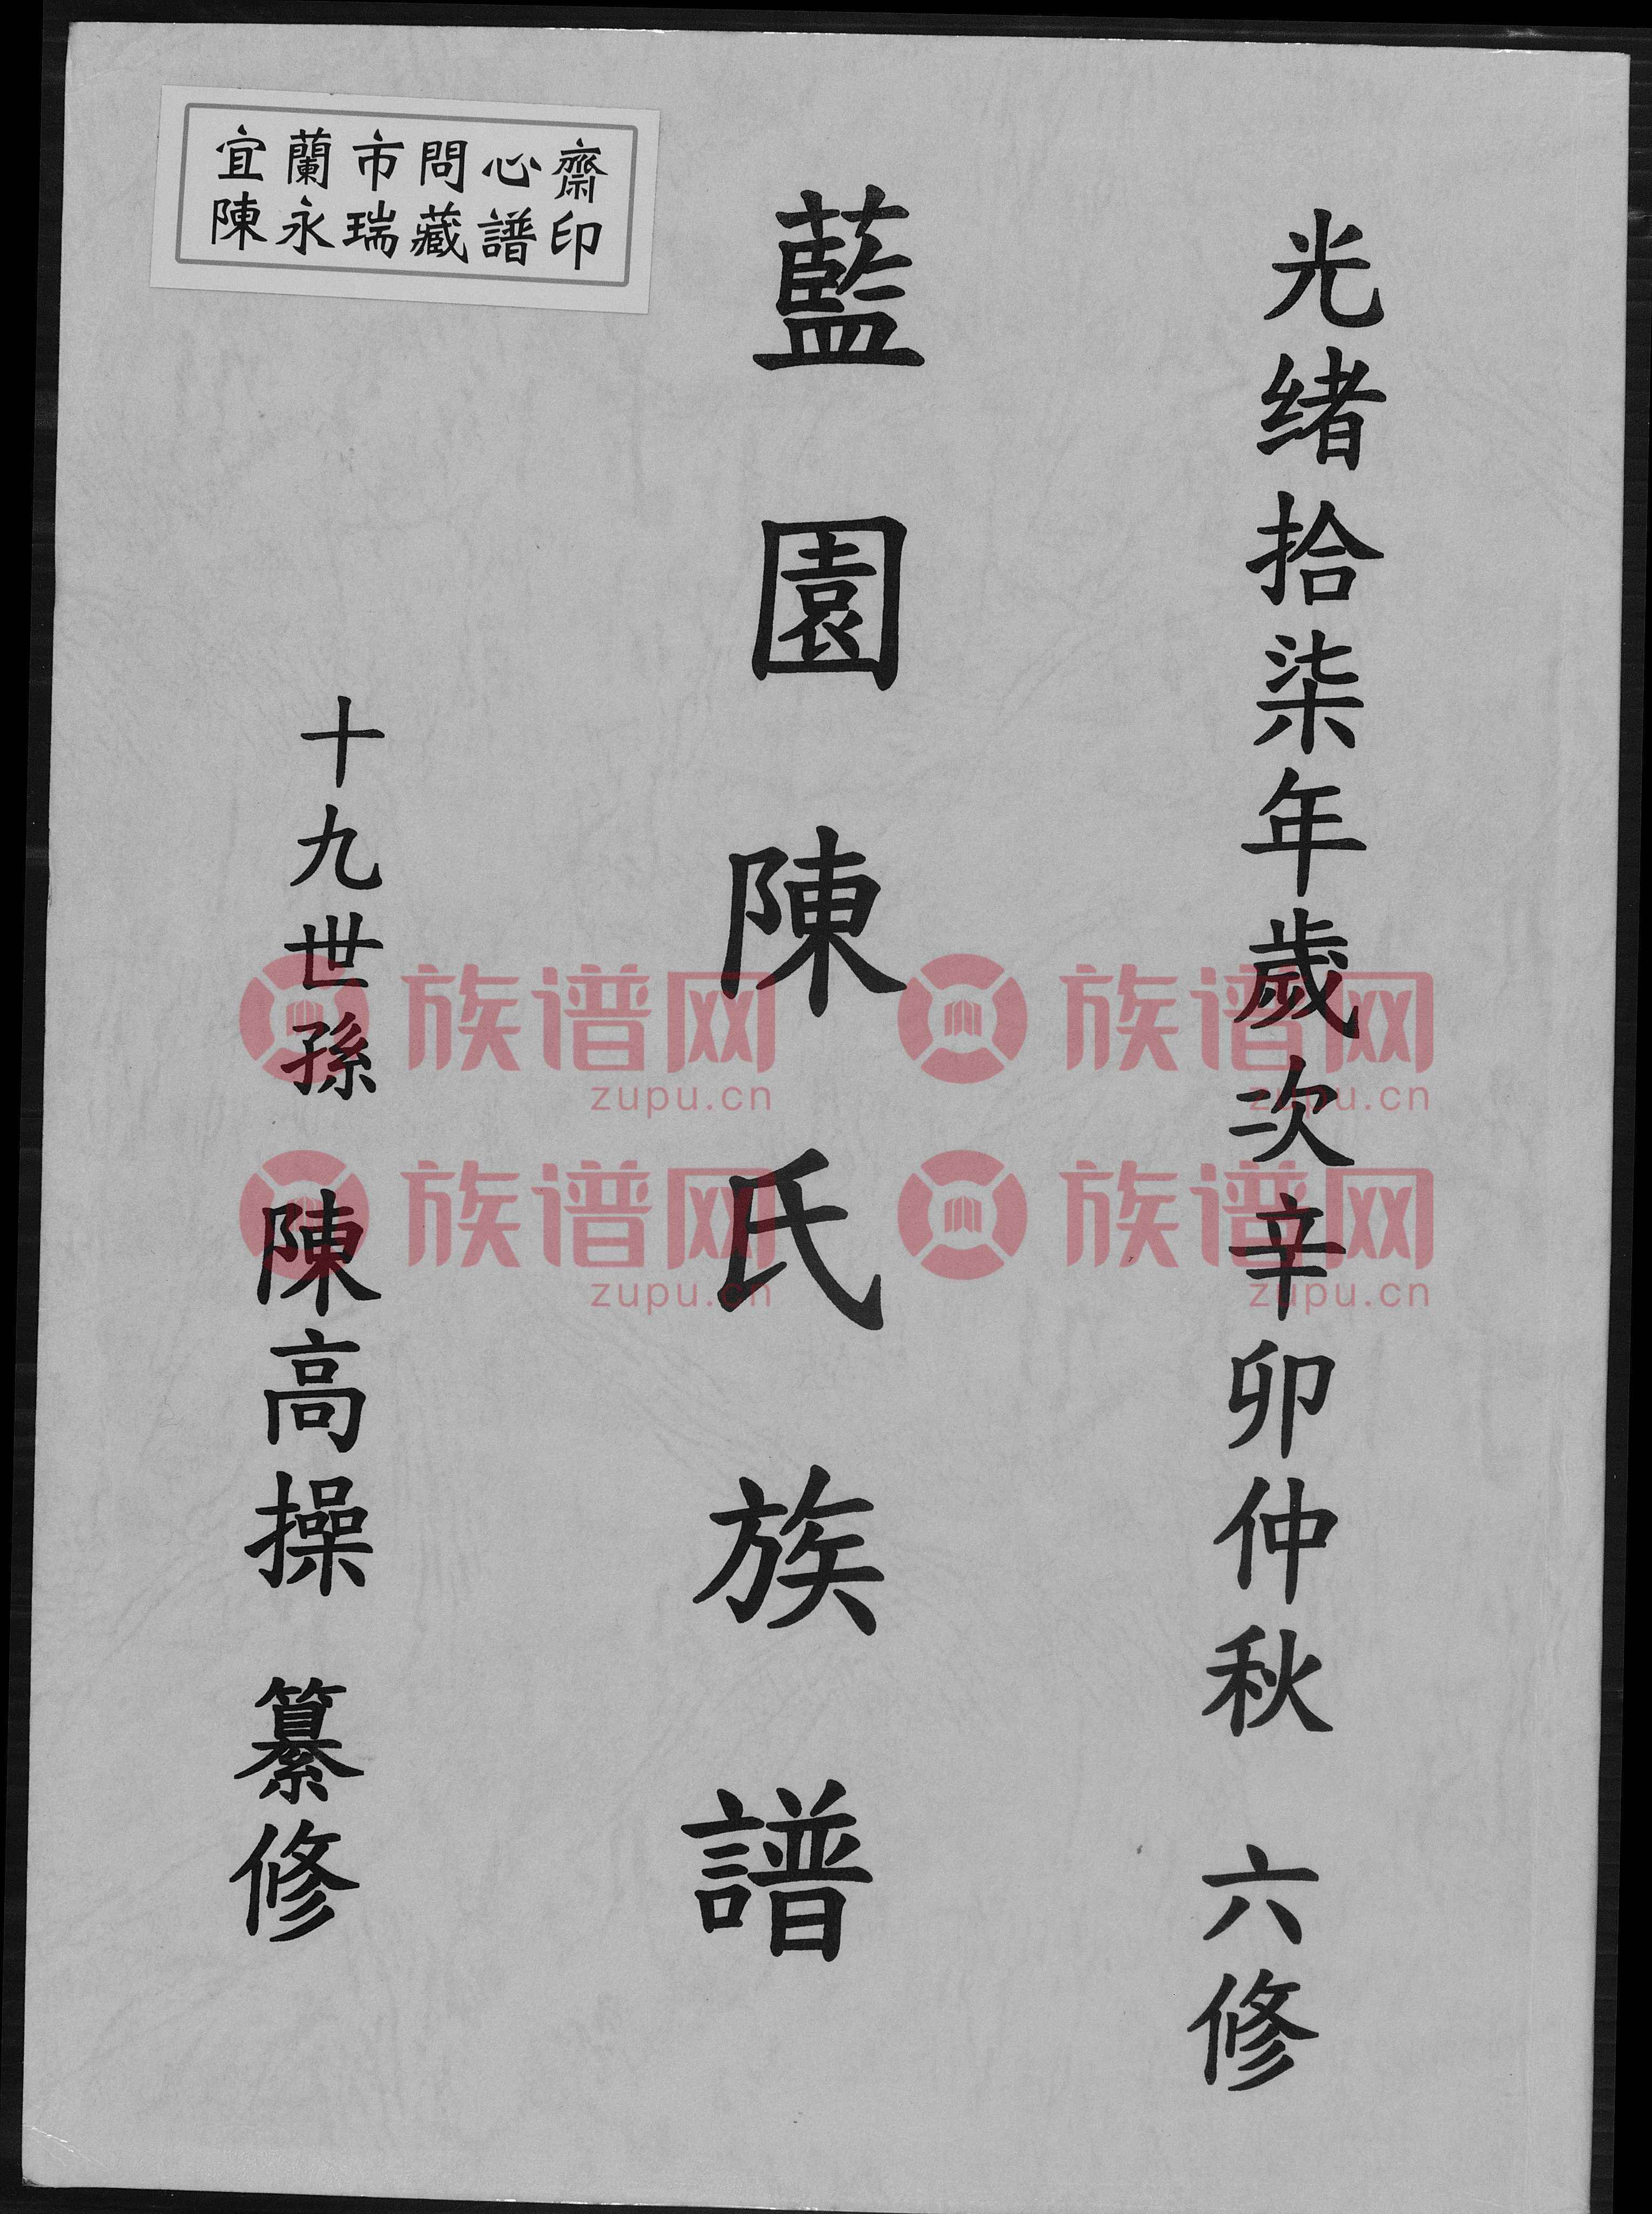 光绪拾柒年歲次辛卯仲秋 六修
藍園陳氏族譜
十九世孫 陳高操 纂修
宜蘭市問心齋
陳永瑞藏譜印
族谱网 族谱网
zupu.cn zupu.cn
族谱网 族谱网
zupu.cn zupu.cn